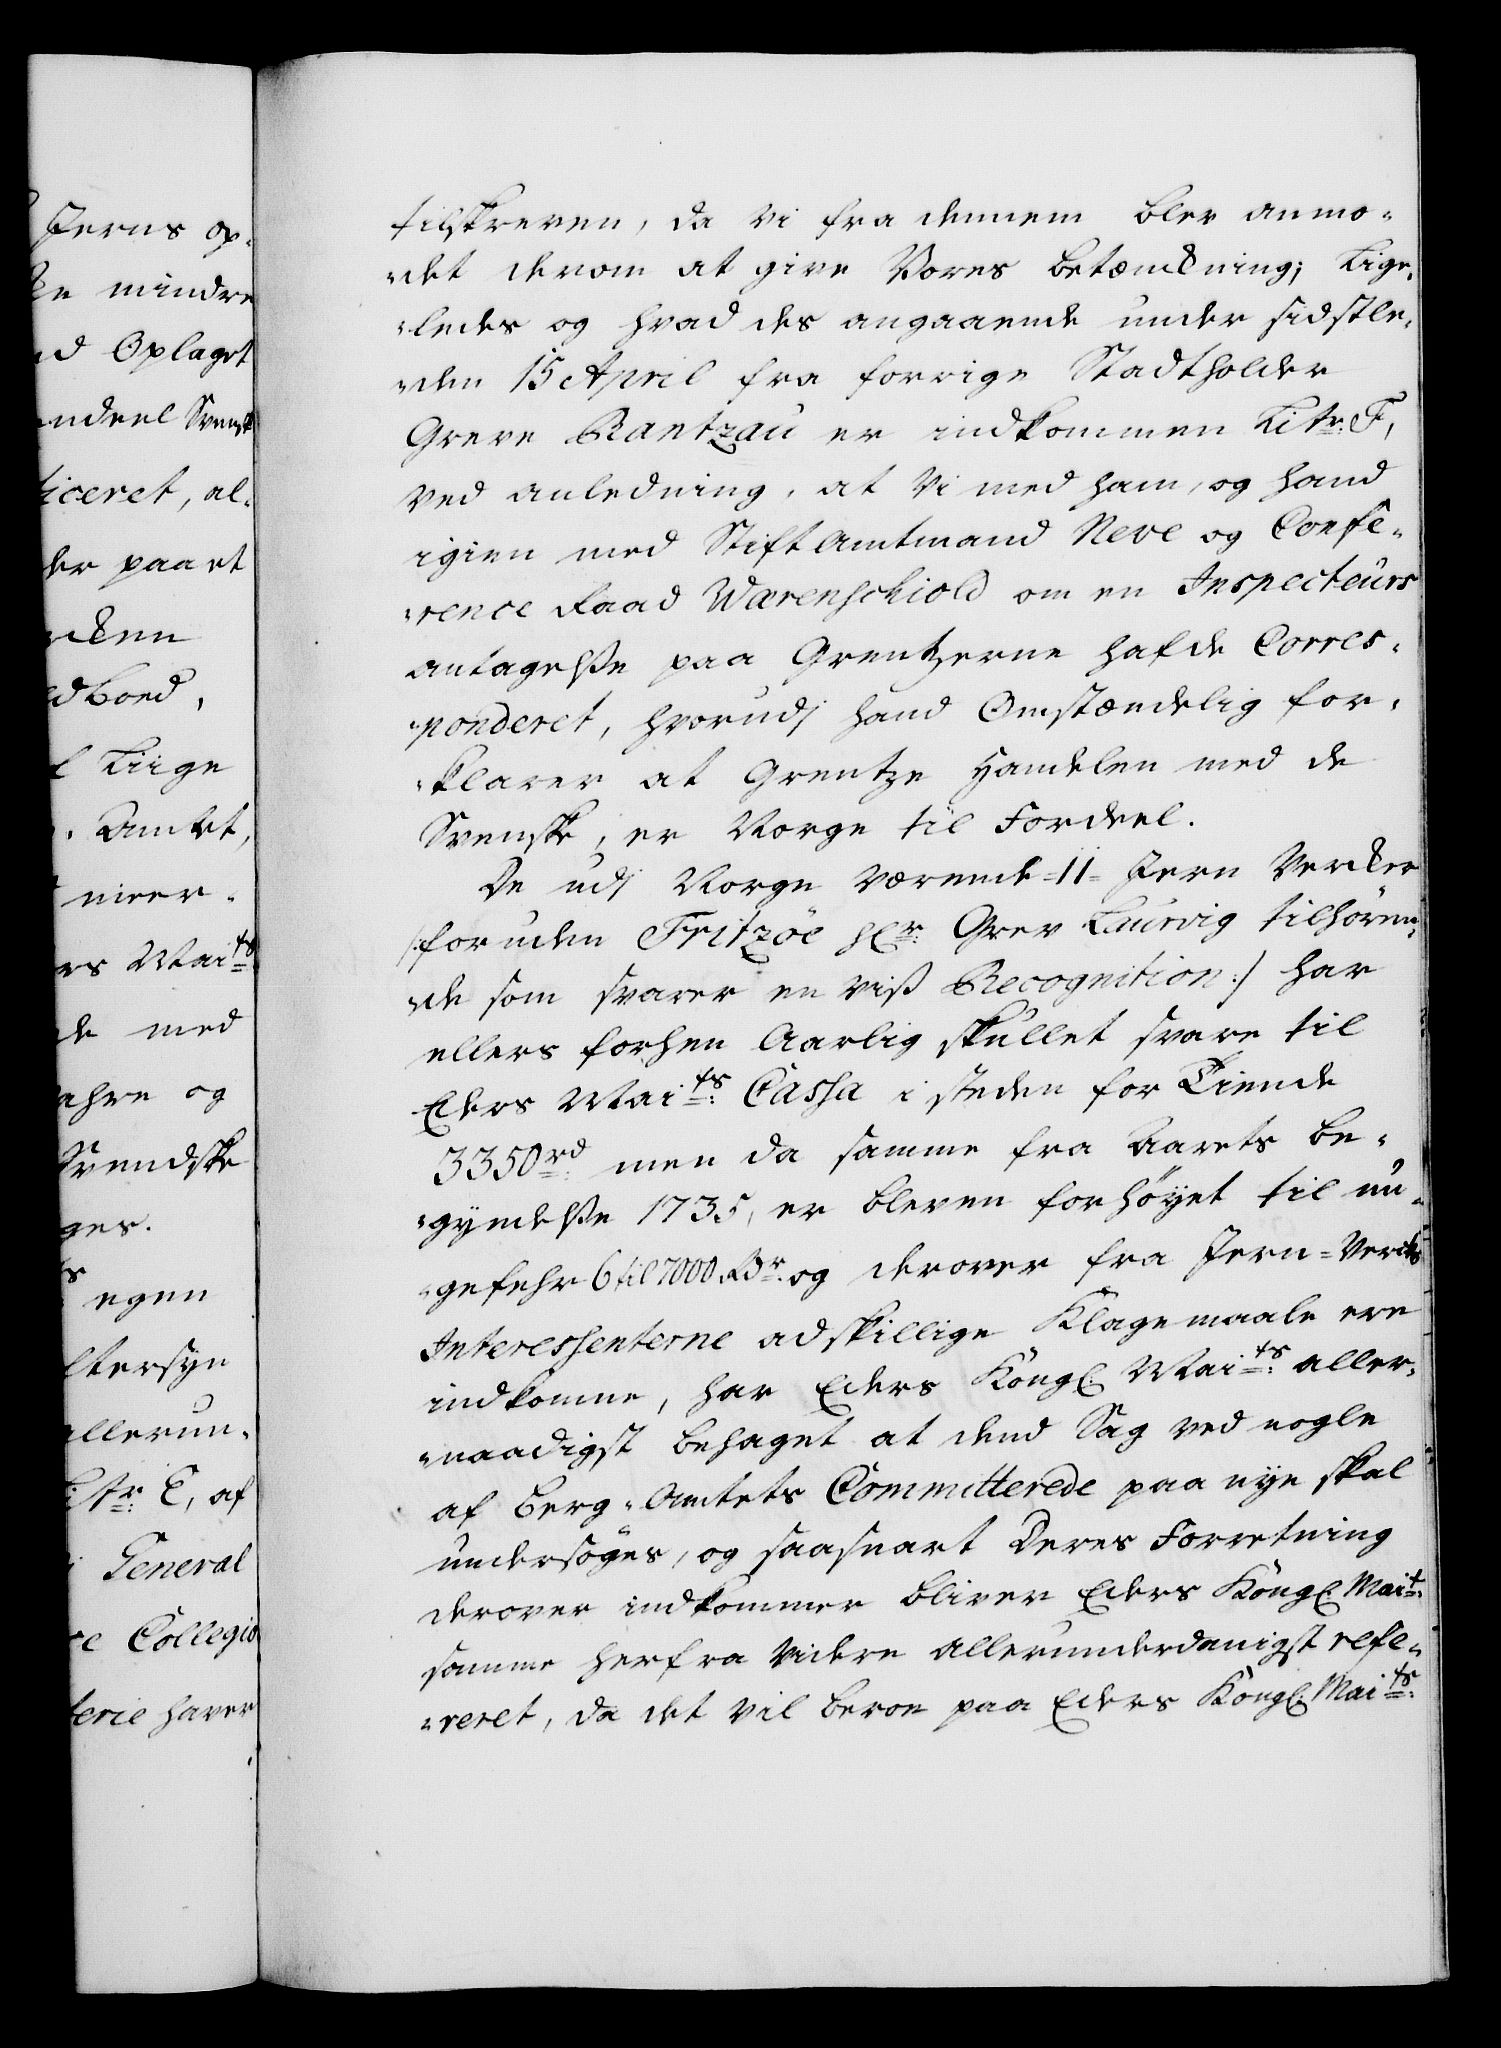 Jerns op-
mindre
Oplaget
Svensk
ticeret, al-
der paa et
dboed,
Liige
Amtet,
meer-
Mai<sup>ts</sup>
de med
og
Svendske
ges.
egen
Eftersyn
allerun-
Litr: E, af
General
Collegio
terie haver
tilskreven, da vi fra dennem blev anmo-
-det derom at give Vores betænckning; Lige-
-ledes og hvad des angaaende under sidstle-
-den 15 April fra forrige Stadtholder
Greve Rantzau er indkommen Litr: F,
ved anledning, at vi med ham, og hand
igien med Stiftamtmand Neve og Confe-
-rence Raad Wærenschiold om en Inspecteurs
antagelße paa Grentzerne hafde Corres-
-ponderet, hvorudj hand Omstændelig for-
-klarer at Grentze Handelen med de
Svenske, er Norge til Fordeel.
De udj Norge værende =11= Jern Vercker
/: foruden Fritzöe hr: Grev Laurvig tilhören-
-de som svarer en viß Recognition :/ har
ellers forhen Aarlig skullet svare til
Eders Mai<sup>ts</sup>: Cassa i steden for Tiende
3350 rd: men da samme fra Aarets be-
-gyndelße 1735, er bleven forhöyet til un-
-gefehr 6 til 7000 Rdr: og derover fra Jern-Vercks
Interessenterne adskillige Klagemaale ere
indkomne, har Eders Kongl: Mai<sup>ts</sup>: aller-
-naadigst behaget at dend Sag ved nogle
af Berg-Amtets Committerede paa nye skal
undersöges, og saasnart Deres Forretning
derover indkommer bliver Eders Kongl: Mai<sup>t</sup>:
samme herfra videre allerunderdanigst refe-
-reret, da det vil beroe paa Eders Kongl: Mai<sup>ts</sup>: